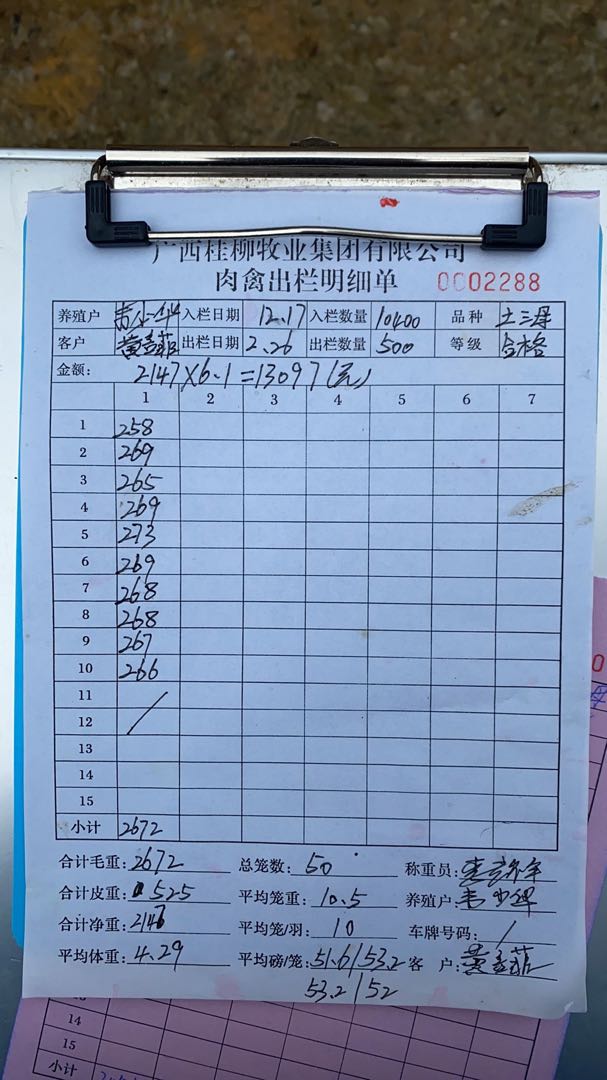 广西桂柳牧业集团有限公司
肉禽出栏明细单 0002288
养殖户 入栏日期 12.17 入栏数量 10400 品种 土三母
客户 黄孟菲 出栏日期 2.26 出栏数量 500 等级 合格
金额: 2147×6.1=13097(元)
1 2 3 4 5 6 7
1 258
2 269
3 265
4 269
5 273
6 269
7 268
8 268
9 267
10 266
11
12
13
14
15
小计 2672
合计毛重: 2672 总笼数: 50 称重员:
合计皮重: 525 平均笼重: 10.5 养殖户:
合计净重: 2146 平均笼/羽: 10 车牌号码: /
平均体重: 4.29 平均磅/笼: 51.6/53.2 客 户: 黄孟菲
53.2/52
14
15
小计